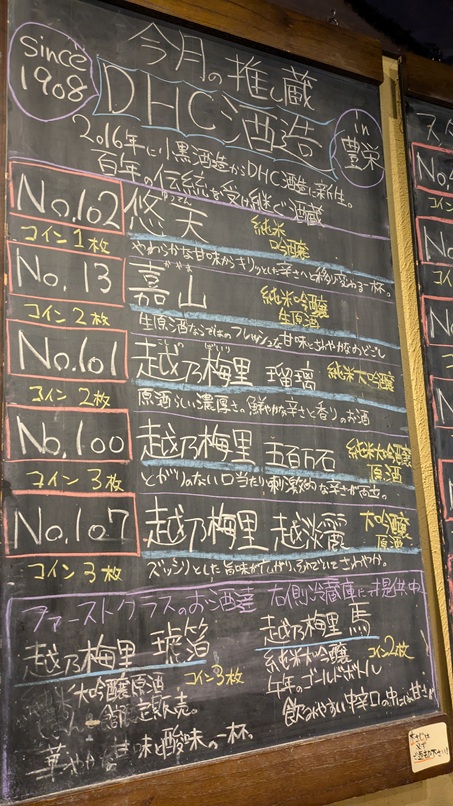 since
1908
今月の推し蔵
DHC酒造
in
豊栄
2016年に小黒酒造からDHC酒造に新生。
百年の伝統を受け継ぐ酒蔵
No.102
ゆうてん
悠天
純米
吟醸
コイン1枚
やわらかな甘味からキリッとした辛さへと移り変わる一杯。
No.13
かやま
嘉山
純米吟醸
生原酒
コイン2枚
生原酒ならではのフレッシュな甘味とさわやかなのどごし
No.101
こしの ばいり
越乃梅里 瑠璃
純米大吟醸
コイン2枚
原酒らしい濃厚さ。鮮やかな辛さと香りのお酒
No.100
越乃梅里 五百万石
純米大吟醸
原酒
コイン3枚
とがりのない口当たり刺激的な辛さが
No.107
越乃梅里 越淡麗
大吟醸
原酒
コイン3枚
ズッシリとした旨味がしっかり、さわやか。
ファーストクラスのお酒達 右側冷蔵庫に提供中
越乃梅里 琥珀
大吟醸原酒
コイン3枚
定販売。
華やか 味と酸味の一杯。
越乃梅里 馬
純米大吟醸
コイン2枚
午年のゴールドボトル
飲みやすい中辛口の中には甘さが